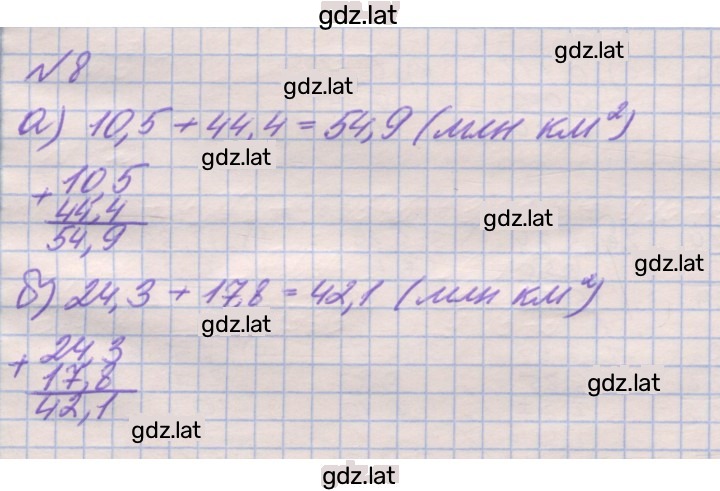 gdz.lat
gdz.lat
№ 8
gdz.lat
а) 10,5 + 44,4 = 54,9 (млн км²)
gdz.lat
+ 10,5
44,4
54,9
gdz.lat
gdz.lat
б) 24,3 + 17,8 = 42,1 (млн км²)
gdz.lat
+ 24,3
17,8
42,1
gdz.lat
gdz.lat
gdz.lat